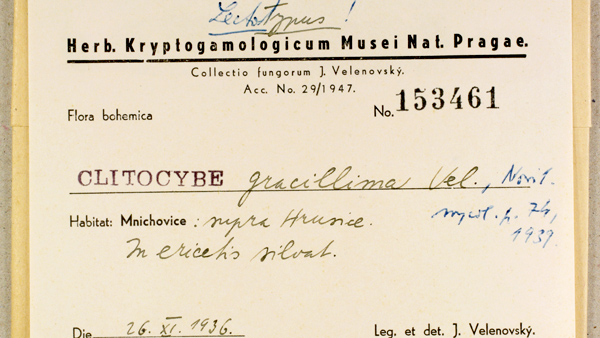 Lectotypus!
Herb. Kryptogamologicum Musei Nat. Pragae.
Collectio fungorum J. Velenovský.
Acc. No. 29/1947.
Flora bohemica
No. 153461
CLITOCYBE gracillima Vel., Novit.
mycol. p. 74,
1939.
Habitat: Mnichovice: supra Hrusice.
In ericetis silvat.
Die 26. XI. 1936.
Leg. et det. J. Velenovský.